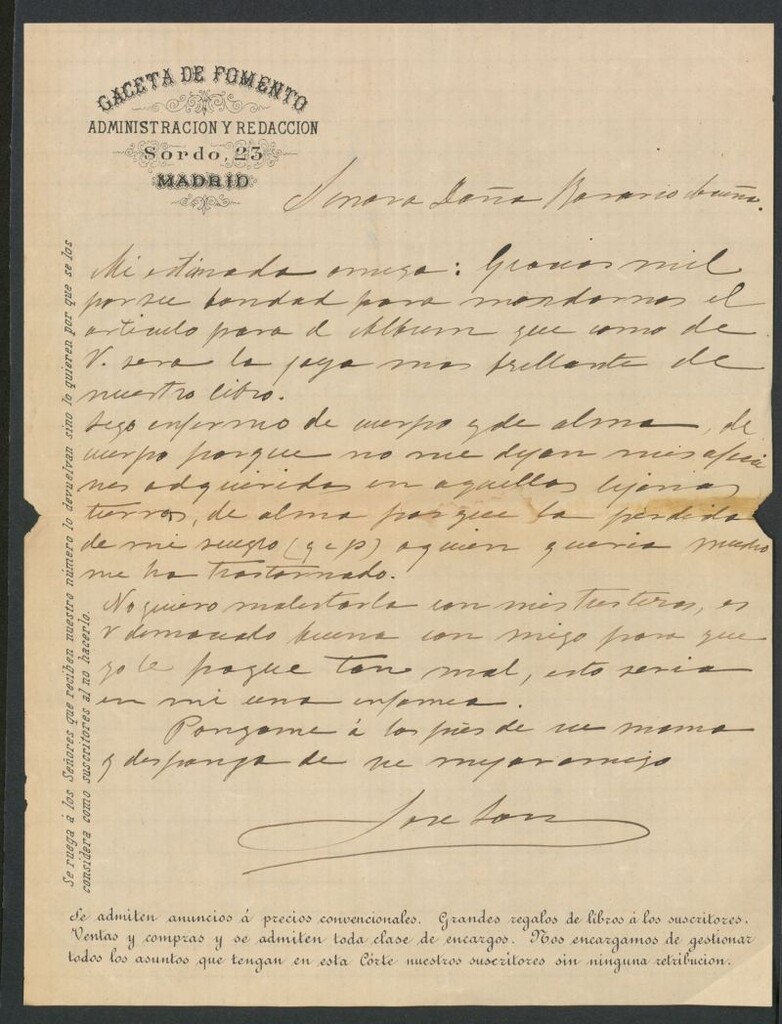 GACETA DE FOMENTO
ADMINISTRACION Y REDACCION
Sordo, 23
MADRID
Senora Doña Rosario Acuña.
Mi estimada amiga: Gracias mil
por su bondad para mandarnos el
articulo para el Album que como de
V. sera la joya mas brillante de
nuestro libro.
Sigo enfermo de cuerpo y de alma, de
cuerpo porque no me dejan mis afecio
nes adquiridas en aquellas lejanas
tierras, de alma porque la pérdida
de mi suegro (q e p) a quien queria mucho
me ha trastornado.
No quiero molestarla con mis tristezas, es
V demasiado buena con migo para que
yo le pague tan mal, esto seria
en mi una infamia.
Pongame á los pies de su mama
y disponga de su mejor amigo
Jose
Se ruega á los Señores que reciben nuestro número lo devuelvan sino lo quieren por que se los
considera como suscritores al no hacerlo.
Se admiten anuncios á precios convencionales. Grandes regalos de libros á los suscritores.
Ventas y compras y se admiten toda clase de encargos. Nos encargamos de gestionar
todos los asuntos que tengan en esta Córte nuestros suscritores sin ninguna retribucion.